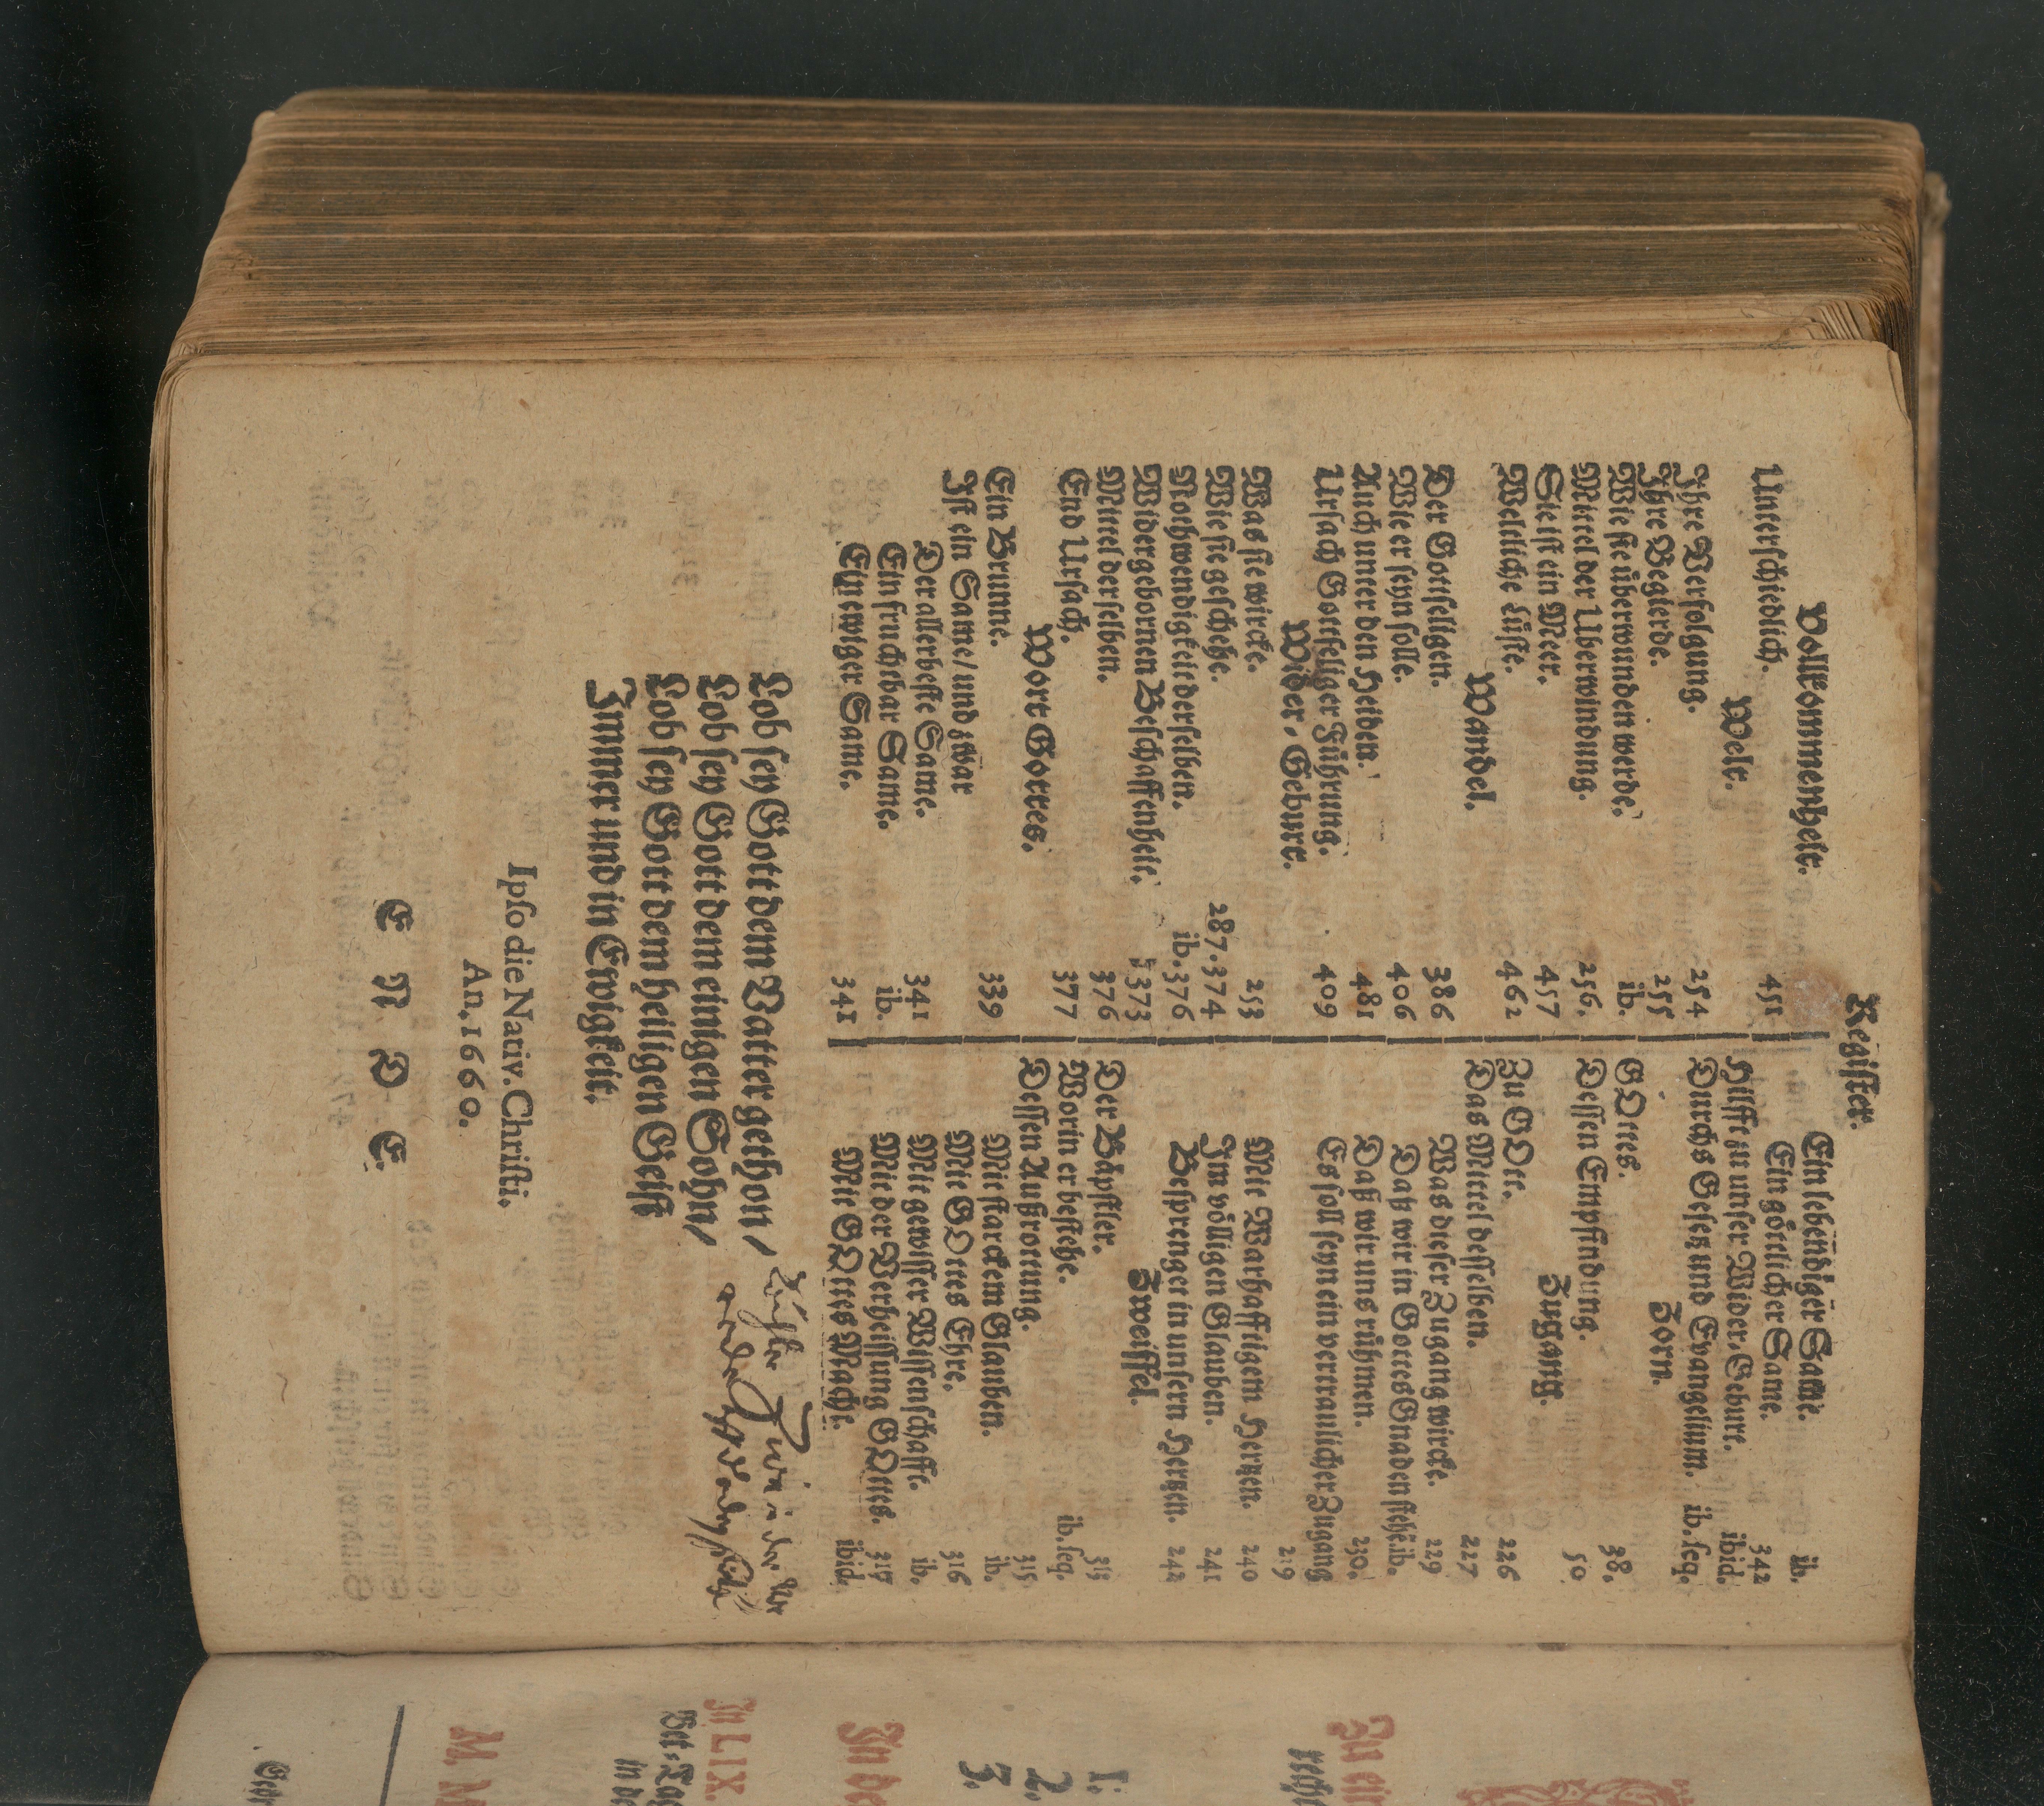 Register.
Vollkommenheit.
Unterschiedlich. 451
Welt.
Ihre Verfolgung. 254
Ihre Begierde. 255
Wie sie überwunden werde. ib.
Mittel der Uberwindung. 256.
Sie ist ein Meer. 457
Weltliche Lüste. 462
Wandel.
Der Gottseligen. 386
Wie er seyn solle. 406
Auch unter den Heiden. 481
Ursach Gottseliger Führung. 409
Wider-Geburt.
Was sie wircke. 253
Wie sie geschehe. 287.374
Nothwendigkeit derselben. ib. 376
Widergebornen Beschaffenheit. 373
Mittel derselben. 376
End Ursach. 377
Wort Gottes.
Ein Brunne. 339
Ist ein Same/ und zwar
Der allerbeste Same. 341
Ein fruchtbar Same. ib.
Ein ewiger Same. 341
Ein lebendiger Same. ib.
Ein göttlicher Same. 342
Hilfft zu unser Wider-Geburt. ibid.
Durchs Gesetz und Evangelium. ib. seq.
Zorn.
GOttes. 38.
Dessen Empfindung. 50
Zugang.
Zu GOtt. 226
Das Mittel desselben. 227
Was dieser Zugang wircke. 229
Daß wir in Gottes Gnaden stehē. ib.
Daß wir uns rühmen. 230.
Es soll seyn ein vertraulicher Zugang
219
Mit Warhafftigem Hertzen. 240
Im völligen Glauben. 241
Besprenget in unsern Hertzen. 242
Zweiffel.
Der Päpstler. 313
Worin er bestehe. ib. seq.
Dessen Außrottung. 315
Mit starckem Glauben. ib.
Mit GOttes Ehre. 316
Mit gewisser Wissenschafft. ib.
Mit der Verheissung GOttes. 317
Mit GOttes Macht. ibid.
Lob sey Gott dem Vatter gethon/
Lob sey Gott dem einigen Sohn/
Lob sey Gott dem heiligen Geist
Immer und in Ewigkeit.
Ipso die Nativ. Christi.
An. 1660.
E N D E.
Zu ein
1.
2.
3.
In de
In LIX.
Bet-Tag
in de
M. M